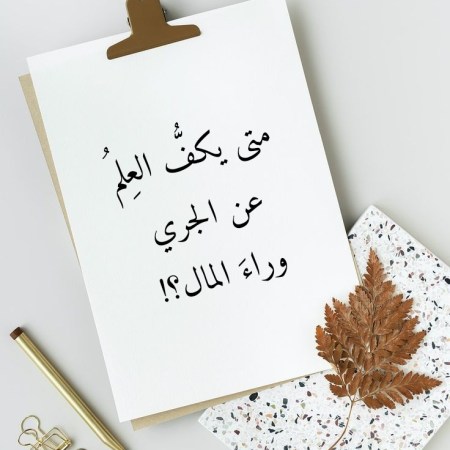 متى يكفُّ العِلمُ
عن الجري
وراءَ المال؟!